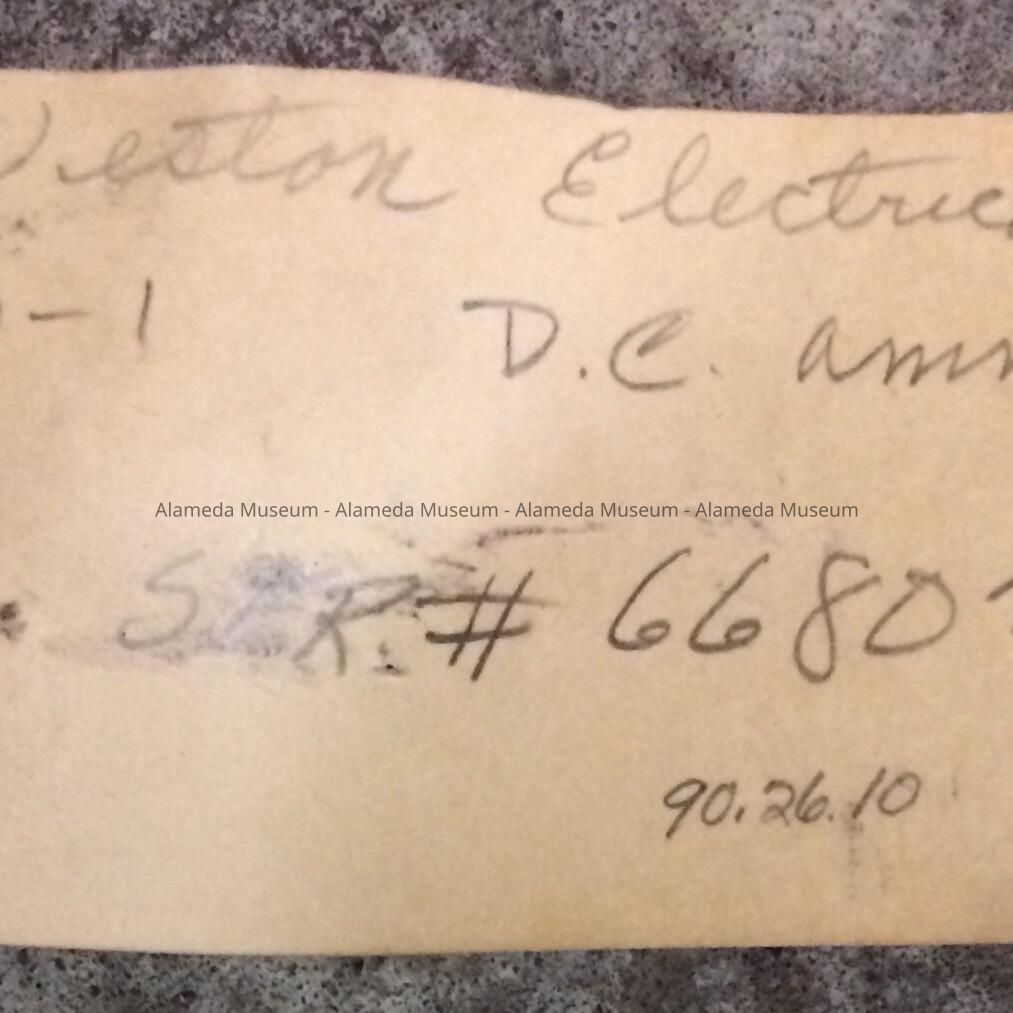 Weston Electric
-1 D.C. amm
Alameda Museum - Alameda Museum - Alameda Museum - Alameda Museum
SER. # 6680
90.26.10